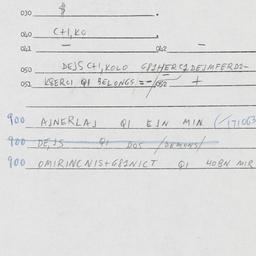 030 8/8 .
040 C+I, KO .
041 — 042 —
050 DEJS C+I, KOLO G82HERC2DEJMFERD2-
051 KBERCI QI BELONGS = - / 052 +
900 AJNERLAJ QI EJN MIN (/171063
900 DEJS QI DOS /DEMONS/
900 OMIRINCNIS+G82NICT QI HOBN MIR